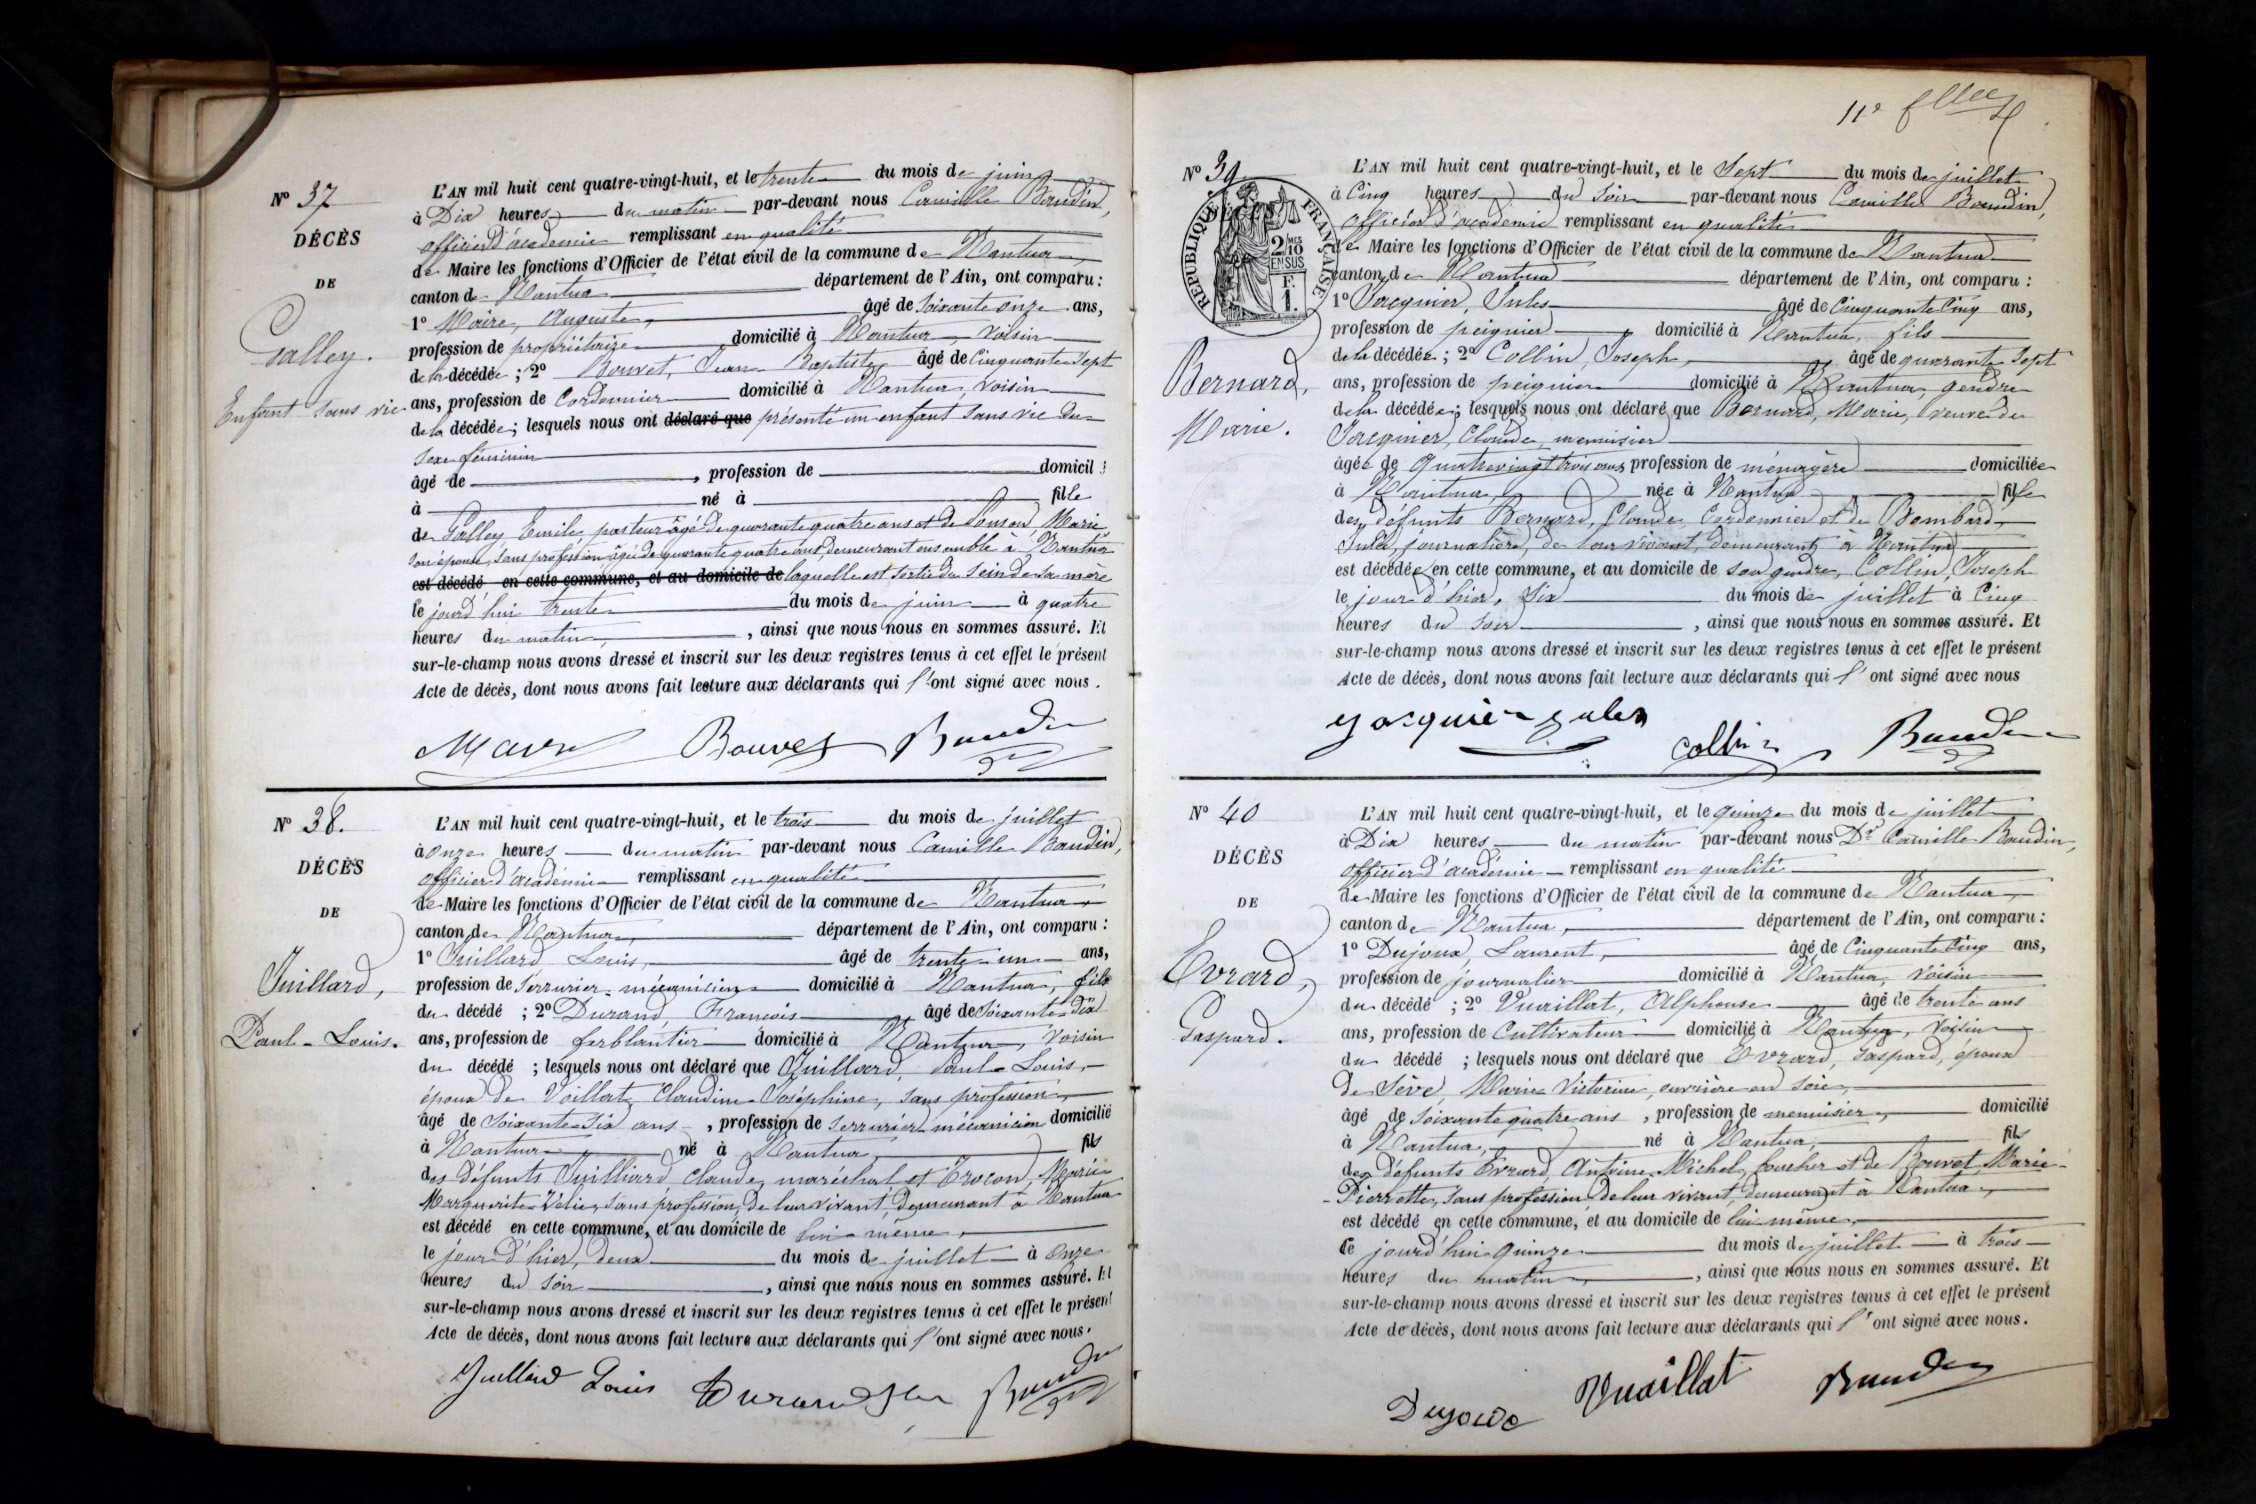 N° 37
DÉCÈS
DE
Galley.
Enfant sans vie
L'AN mil huit cent quatre-vingt-huit, et le trente du mois de juin
à Dix heures du matin par-devant nous Camille Baudin,
officier d'académie remplissant en qualité
de Maire les fonctions d'Officier de l'état civil de la commune de Nantua
canton de Nantua département de l'Ain, ont comparu :
1° Maire, Auguste, âgé de soixante onze ans,
profession de propriétaire domicilié à Nantua, voisin
de la décédée ; 2° Bouvet, Jean Baptiste âgé de cinquante sept
ans, profession de Cordonnier domicilié à Nantua, voisin
de la décédée ; lesquels nous ont déclaré que présenté un enfant sans vie du
sexe féminin
âgé de , profession de domicil
à né à fille
de Galley, Emile, pasteur âgé de quarante quatre ans et de Marie
son épouse, sans profession âgée de quarante quatre ans, demeurant ensemble à Nantua
est décédé en cette commune, et au domicile de laquelle est sortie du sein de sa mère
le jourd'hui trente du mois de juin à quatre
heures du matin, , ainsi que nous nous en sommes assuré. Et
sur-le-champ nous avons dressé et inscrit sur les deux registres tenus à cet effet le présent
Acte de décès, dont nous avons fait lecture aux déclarants qui l'ont signé avec nous.
Bouvet Baudin
N° 38.
DÉCÈS
DE
Juillard,
Paul-Louis.
L'AN mil huit cent quatre-vingt-huit, et le trois du mois de juillet
à onze heures du matin par-devant nous Camille Baudin,
officier d'académie remplissant en qualité
de Maire les fonctions d'Officier de l'état civil de la commune de Nantua
canton de Nantua, département de l'Ain, ont comparu :
1° Juillard Louis, âgé de trente-un ans,
profession de serrurier-mécanicien domicilié à Nantua, fils
du décédé ; 2° Durand, François âgé de soixante-dix
ans, profession de ferblantier domicilié à Nantua, voisin
du décédé ; lesquels nous ont déclaré que Juillard, Paul-Louis,
époux de Voillat, Claudine-Joséphine, sans profession,
âgé de soixante-six ans, profession de serrurier-mécanicien domicilié
à Nantua né à Nantua, fils
des défunts Juilliard Claude, maréchal et Marie
Marguerite-Délie, sans profession, de leur vivant, demeurant à Nantua
est décédé en cette commune, et au domicile de lui-même,
le jour d'hier, deux du mois de juillet à onze
heures du soir , ainsi que nous nous en sommes assuré. Et
sur-le-champ nous avons dressé et inscrit sur les deux registres tenus à cet effet le présent
Acte de décès, dont nous avons fait lecture aux déclarants qui l'ont signé avec nous.
Juillard Louis Durand Baudin
N° 39
RÉPUBLIQUE FRANÇAISE
2 MES
10
EN SUS
F.
1.
Bernard,
Marie.
L'AN mil huit cent quatre-vingt-huit, et le sept du mois de juillet
à Cinq heures du soir par-devant nous Camille Baudin,
officier d'académie remplissant en qualité
de Maire les fonctions d'Officier de l'état civil de la commune de Nantua
canton de Nantua département de l'Ain, ont comparu :
1° Jacquier, Jules âgé de Cinquante Cinq ans,
profession de peignier domicilié à Nantua, fils
de la décédée ; 2° Collin, Joseph, âgé de quarante sept
ans, profession de peignier domicilié à Nantua, gendre
de la décédée ; lesquels nous ont déclaré que Bernard, Marie, veuve de
Jacquier, Claude, menuisier
âgée de quatre vingt trois ans, profession de ménagère domiciliée
à Nantua, née à Nantua fille
des défunts Bernard, Claude, Cordonnier et de Bombard,
journalière, de leur vivant, demeurant à Nantua
est décédée en cette commune, et au domicile de son gendre, Collin, Joseph
le jour d'hier, six du mois de juillet à Cinq
heures du soir , ainsi que nous nous en sommes assuré. Et
sur-le-champ nous avons dressé et inscrit sur les deux registres tenus à cet effet le présent
Acte de décès, dont nous avons fait lecture aux déclarants qui l'ont signé avec nous
Collin Baudin
N° 40
DÉCÈS
DE
Evrard,
Gaspard.
L'AN mil huit cent quatre-vingt-huit, et le quinze du mois de juillet
à Dix heures du matin par-devant nous Dr Camille Baudin,
officier d'académie remplissant en qualité
de Maire les fonctions d'Officier de l'état civil de la commune de Nantua
canton de Nantua, département de l'Ain, ont comparu :
1° Dujoux, Laurent, âgé de Cinquante Cinq ans,
profession de journalier domicilié à Nantua, voisin
du décédé ; 2° Vuaillat, Alphonse âgé de trente ans
ans, profession de Cultivateur domicilié à Nantua, voisin
du décédé ; lesquels nous ont déclaré que Evrard, Gaspard, époux
de Sève, Marie Victorine, ouvrière en soie,
âgé de soixante quatre ans, profession de menuisier, domicilié
à Nantua, né à Nantua, fils
des défunts Evrard, Antoine-Michel, boucher et de Bouvet, Marie-
-Pierrette, sans profession de leur vivant, demeurant à Nantua
est décédé en cette commune, et au domicile de lui-même,
le jourd'hui quinze du mois de juillet à trois
heures du matin, , ainsi que nous nous en sommes assuré. Et
sur-le-champ nous avons dressé et inscrit sur les deux registres tenus à cet effet le présent
Acte de décès, dont nous avons fait lecture aux déclarants qui l'ont signé avec nous.
Dujoux Vuaillat Baudin